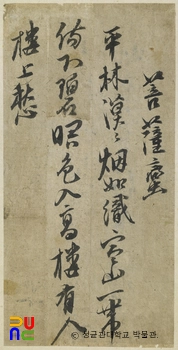 菩薩蠻
平林漠〻烟如織寒山一帶
傷心碧暝色入高樓有人
樓上愁
ⓒ 성균관대학교 박물관